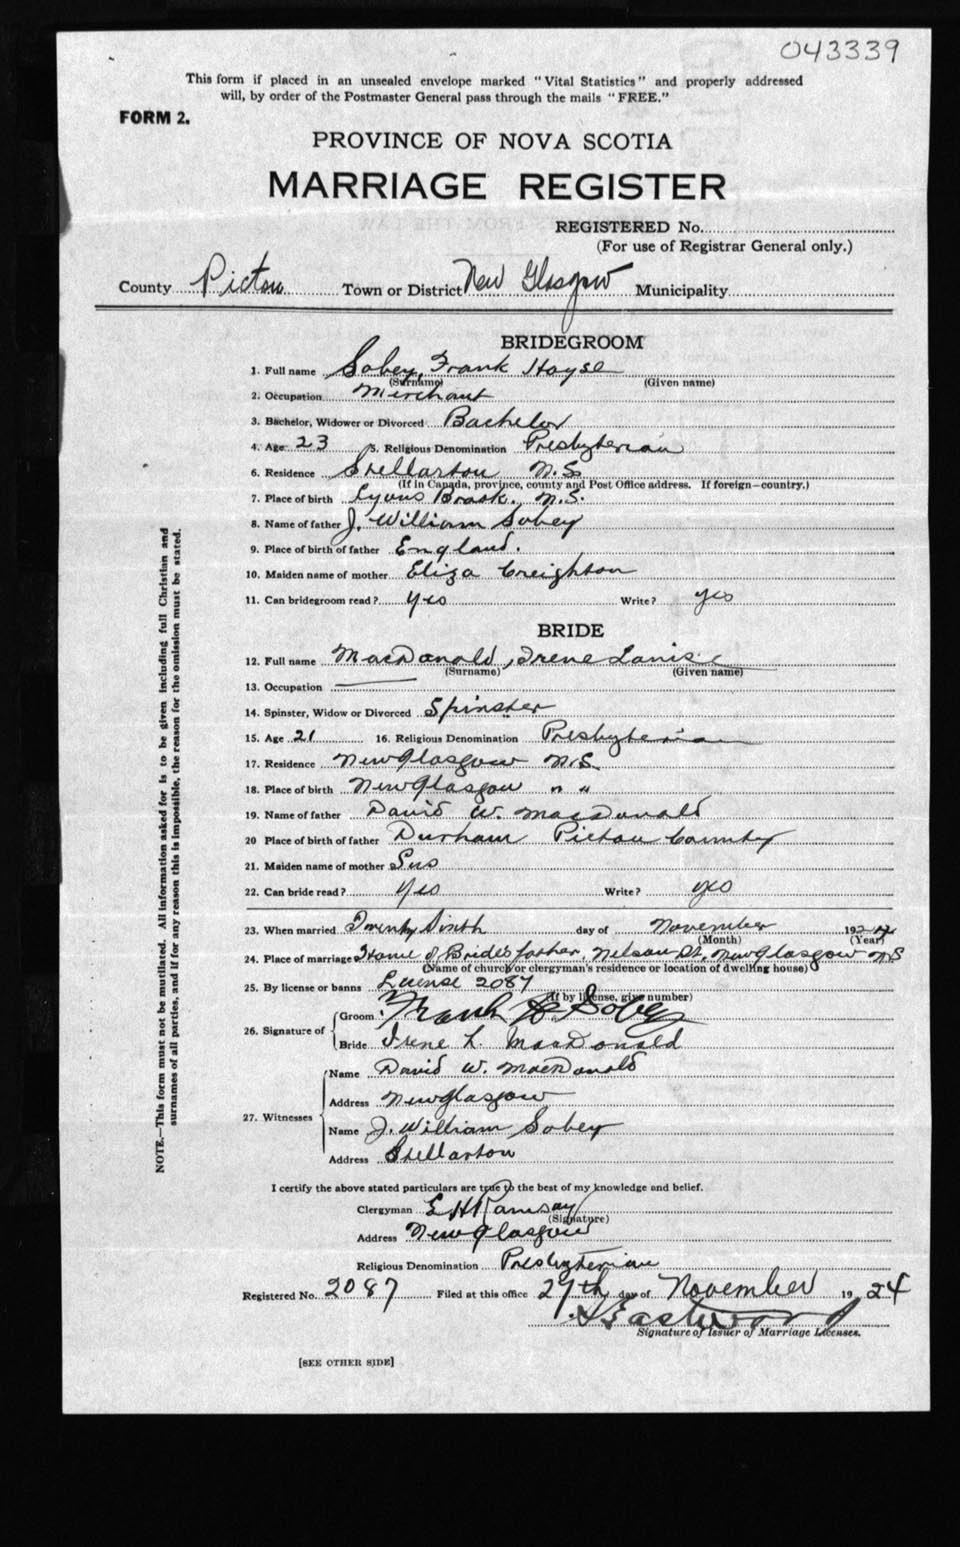 043339
This form if placed in an unsealed envelope marked "Vital Statistics" and properly addressed
will, by order of the Postmaster General pass through the mails "FREE."
FORM 2.
PROVINCE OF NOVA SCOTIA
MARRIAGE REGISTER
REGISTERED No.
(For use of Registrar General only.)
County Pictou Town or District New Glasgow Municipality
BRIDEGROOM
1. Full name Sobey, Frank Hoyse
(Surname) (Given name)
2. Occupation Merchant
3. Bachelor, Widower or Divorced Bachelor
4. Age 23 5. Religious Denomination Presbyterian
6. Residence Stellarton N.S
(If in Canada, province, county and Post Office address. If foreign—country.)
7. Place of birth Lyons Brook. N.S.
8. Name of father J. William Sobey
9. Place of birth of father England.
10. Maiden name of mother Eliza Creighton
11. Can bridegroom read? yes Write? yes
BRIDE
12. Full name MacDonald, Irene
(Surname) (Given name)
13. Occupation
14. Spinster, Widow or Divorced Spinster
15. Age 21 16. Religious Denomination Presbyterian
17. Residence New Glasgow N.S.
18. Place of birth New Glasgow " "
19. Name of father David W. MacDonald
20 Place of birth of father Durham Pictou County
21. Maiden name of mother
22. Can bride read? yes Write? yes
23. When married Twenty Sixth day of November 192
(Month) (Year)
24. Place of marriage Home of Bride's father, Nelson St, New Glasgow NS
(Name of church or clergyman's residence or location of dwelling house)
25. By license or banns License 2087
(If by license, give number)
26. Signature of
Groom Frank H Sobey
Bride Irene L. MacDonald
27. Witnesses
Name David W. MacDonald
Address New Glasgow
Name J. William Sobey
Address Stellarton
I certify the above stated particulars are true to the best of my knowledge and belief.
Clergyman E H Ramsay
(Signature)
Address New Glasgow
Religious Denomination Presbyterian
Registered No. 2087 Filed at this office 27th day of November 19 24
Eastwood
Signature of Issuer of Marriage Licenses.
[SEE OTHER SIDE]
NOTE.—This form must not be mutilated. All information asked for is to be given including full Christian and
surnames of all parties, and if for any reason this is impossible, the reason for the omission must be stated.